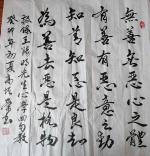 無善無惡心之體
有善有惡意之動
知善知惡是良知
為善去惡是格物
錄陽明先生心學四句教
癸卯年初夏高